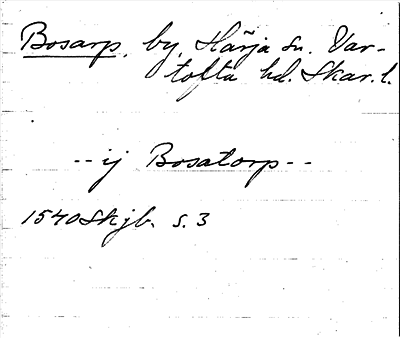 Bosarp, by, Härja sn. Var-
tofta hd. Skar. l.
-- ij Bosatorp --
1540 Skjb. s. 3